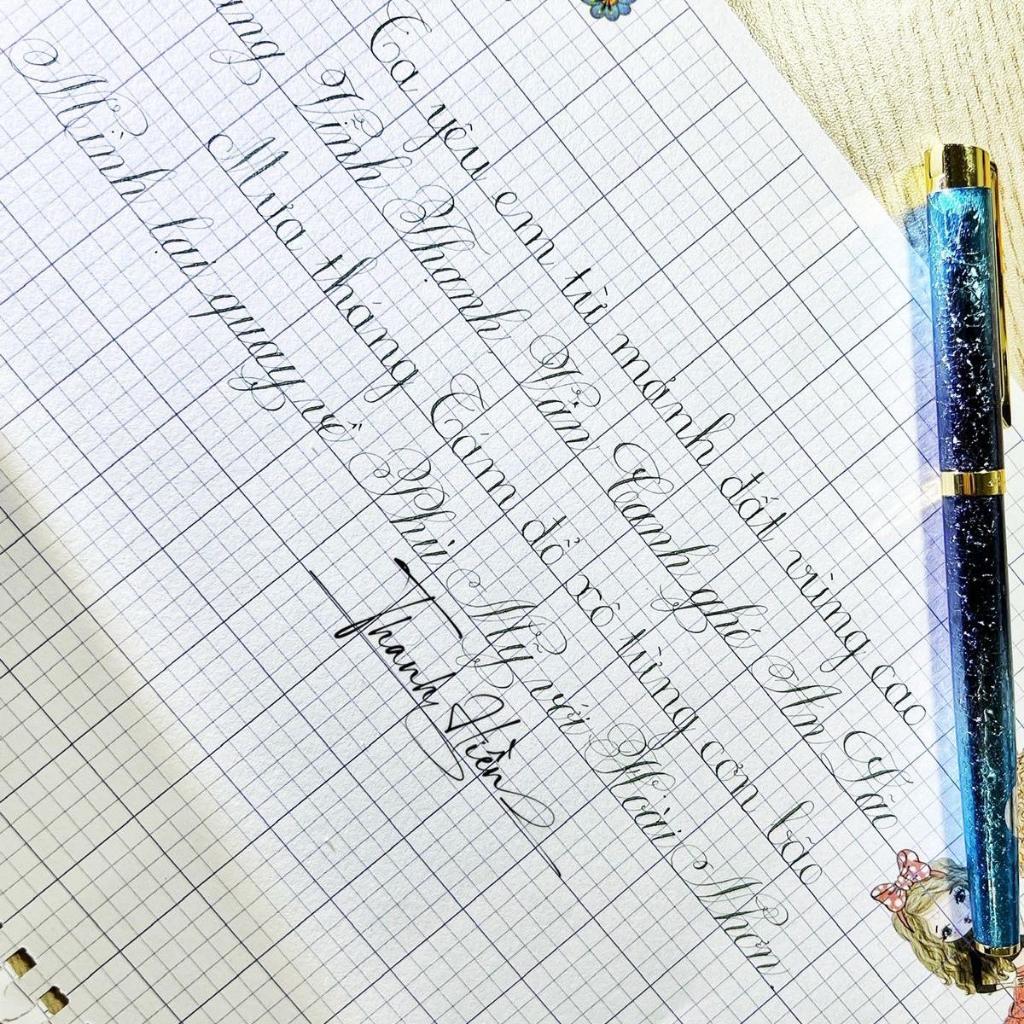 Ta yêu em từ mảnh đất vùng cao
Vĩnh Thạnh, Vân Canh ghé An Lão
Mưa tháng Tám đổ xô từng cơn bão
Mình lại quay về Phù Mỹ với Hoài Nhơn.
Thanh Hiền